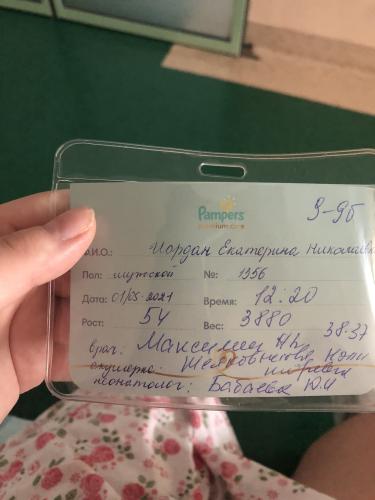 Pampers
premium care
9-9б
Ф.И.О.: Иордан Екатерина Николаевна
Пол: мужской №: 1956
Дата: 01/05-2021 Время: 12:20
Рост: 54 Вес: 3880 38-37
врач:
акушерка:
неонатолог: Бабаева Ю.И